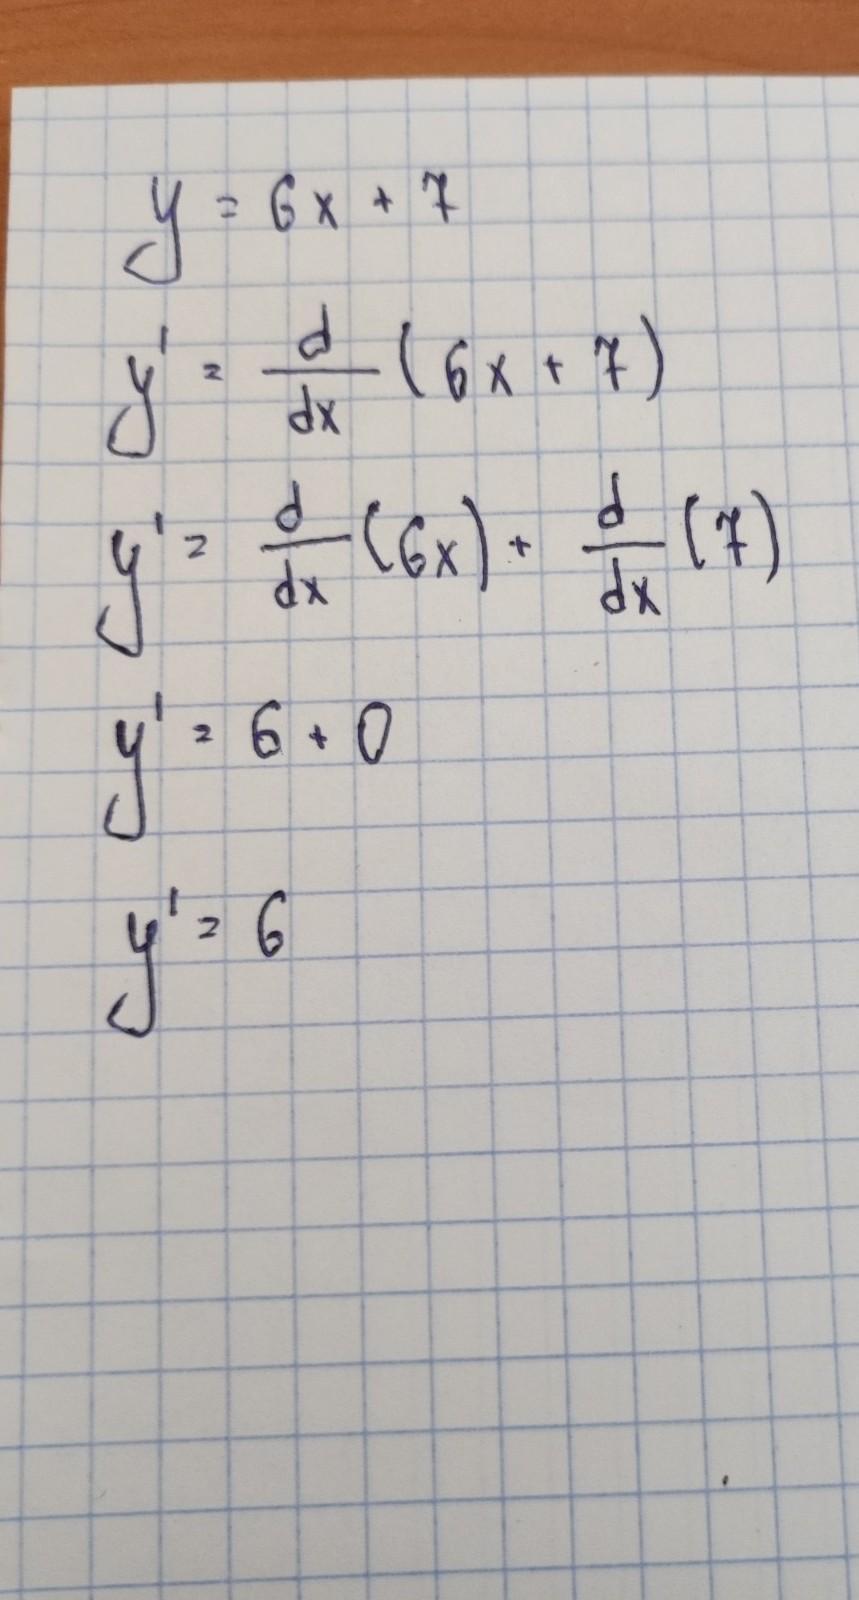 y = 6x + 7
y' = d/dx (6x + 7)
y' = d/dx (6x) + d/dx (7)
y' = 6 + 0
y' = 6